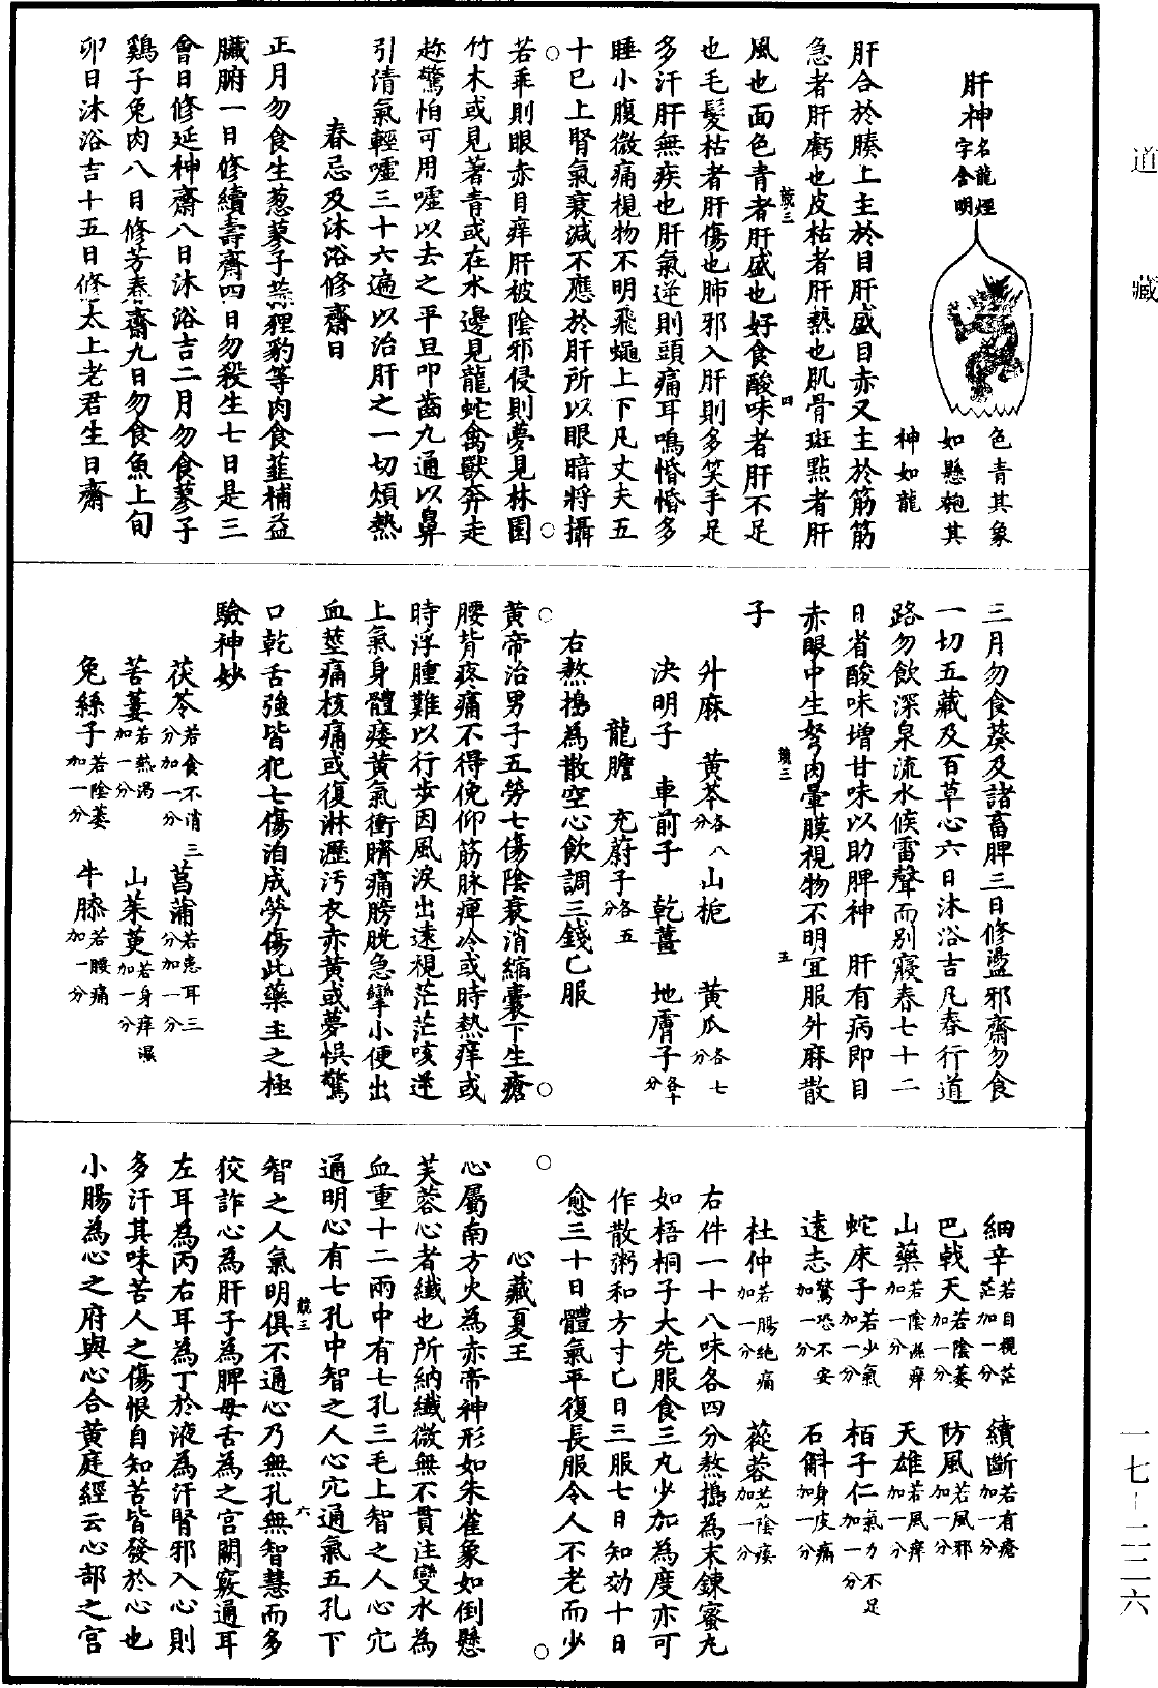 道藏
肝神名龍煙字含明
色青其象
如懸匏其
神如龍
肝合於膝上主於目肝盛目赤又主於筋筋
急者肝虧也皮枯者肝熱也肌骨斑點者肝
風也面色青者肝盛也好食酸味者肝不足
也毛髮枯者肝傷也肺邪入肝則多笑手足
多汗肝無疾也肝氣逆則頭痛耳鳴惛惛多
睡小腹微痛視物不明飛蠅上下凡丈夫五
十已上腎氣衰減不應於肝所以眼暗將攝
若乖則眼赤目痒肝被陰邪侵則夢見林園
竹木或見著青或在水邊見龍蛇禽獸奔走
趂驚怕可用噓以去之平旦叩齒九通以鼻
引清氣輕噓三十六遍以治肝之一切煩熱
春忌及沐浴修齋日
正月勿食生葱蓼子羔狸豹等肉食韮補益
臟腑一日修續壽齋四日勿殺生七日是三
會日修延神齋八日沐浴吉二月勿食蓼子
鷄子兔肉八日修芳春齋九日勿食魚上旬
卯日沐浴吉十五日修太上老君生日齋
三月勿食葵及諸畜脾三日修盪邪齋勿食
一切五藏及百草心六日沐浴吉凡春行道
路勿飲深泉流水候雷聲而別寢春七十二
日省酸味增甘味以助脾神　肝有病即目
赤眼中生努肉暈膜視物不明宜服升麻散
子
升麻　黄芩各八分　山梔　黄瓜各七分
決明子　車前子　乾薑　地膚子各十分
龍膽　充蔚子各五分
右熬搗為散空心飲調三錢匕服
黄帝治男子五勞七傷陰衰消縮囊下生瘡
腰背疼痛不得俛仰筋脉痺冷或時熱痒或
時浮腫難以行步因風淚出遠視茫茫咳逆
上氣身體痿黄氣衝臍痛膀胱急攣小便出
血莖痛核痛或復淋瀝汚衣赤黄或夢悮驚
口乾舌強皆犯七傷洎成勞傷此藥主之極
驗神妙
茯苓若食不消三分加一分　菖蒲若患耳三分加一分
苦蔞若熱渴加一分　山茱萸若身痒濕加一分
兔絲子若陰萎加一分　牛膝若腰痛加一分
細辛若目視茫茫加一分　續斷若有瘡加一分
巴戟天若陰萎加一分　防風若風邪加一分
山藥若陰濕痺加一分　天雄若風痒加一分
蛇床子若少氣加一分　栢子仁氣力不足加一分
遠志驚恐不安加一分　石斛身皮痛加一分
杜仲若腸絶痛加一分　蓯蓉若陰痿加一分
右件一十八味各四分熬搗為末鍊蜜丸
如梧桐子大先服食三丸少加為度亦可
作散粥和方寸匕日三服七日知効十日
愈三十日體氣平復長服令人不老而少
心藏夏王
心屬南方火為赤帝神形如朱雀象如倒懸
芙蓉心者纖也所納纖微無不貫注變水為
血重十二兩中有七孔三毛上智之人心穴
通明心有七孔中智之人心穴通氣五孔下
智之人氣明俱不通心乃無孔無智慧而多
狡詐心為肝子為脾母舌為之宫闕竅通耳
左耳為丙右耳為丁於液為汗腎邪入心則
多汗其味苦人之傷恨自知苦皆發於心也
小腸為心之府與心合黄庭經云心部之宫
一七-二二六